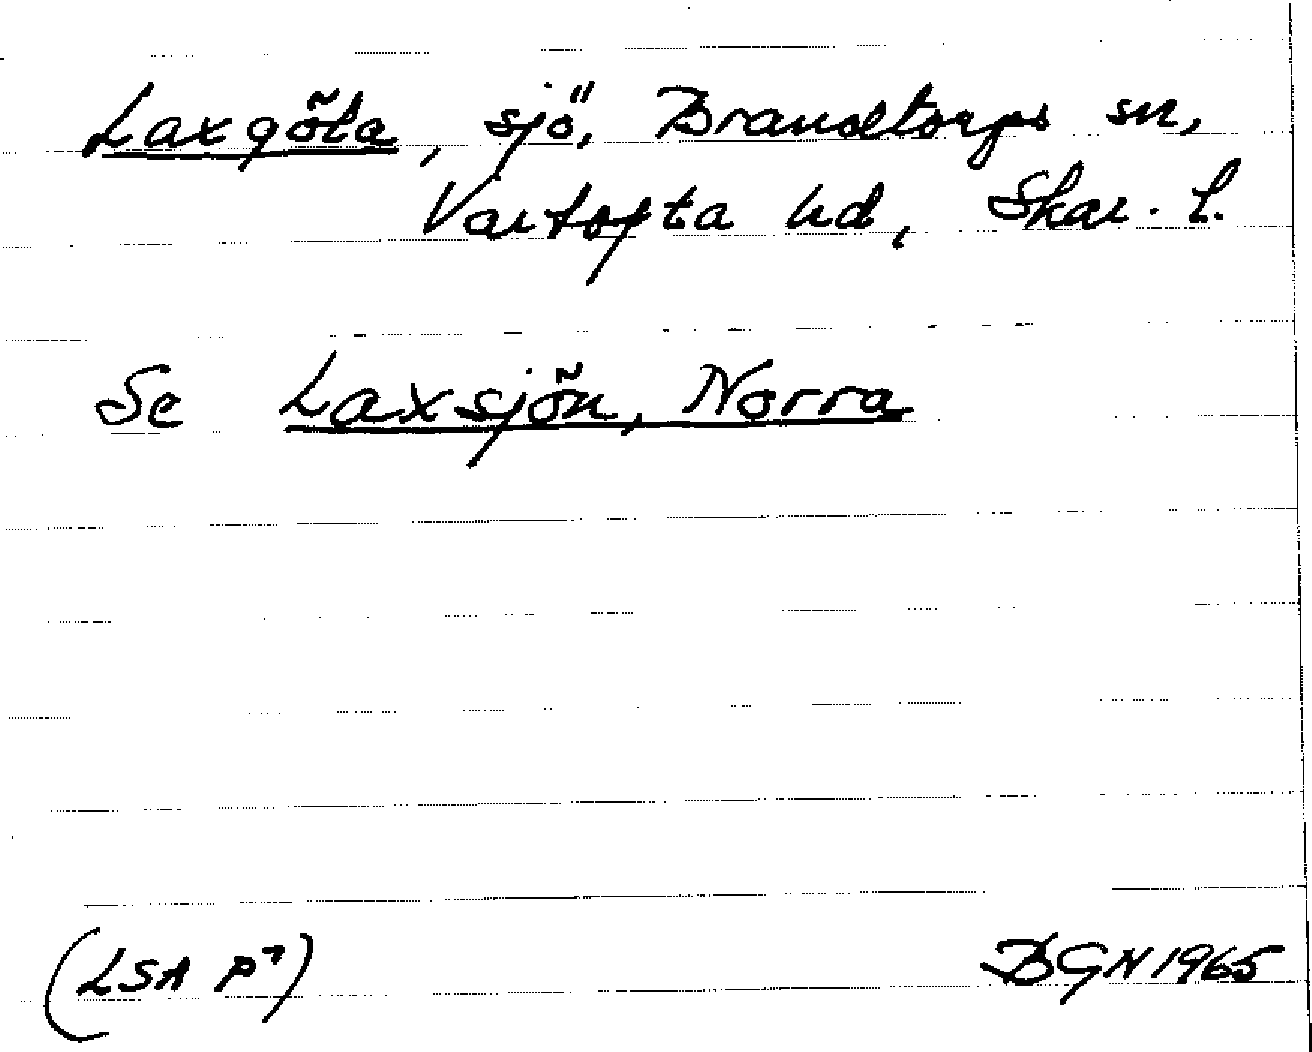 Laxgöta, sjö, Brandstorps sn,
Vartofta hd, Skar. l.
Se Laxsjön, Norra
(LSA P7)
BGN 1965